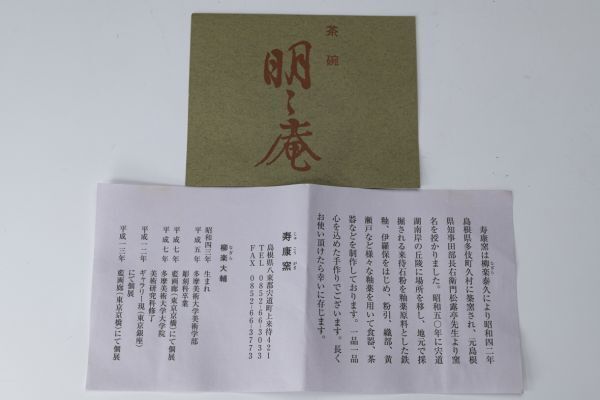 茶碗
明々庵
寿康窯は柳楽泰久により昭和四二年
島根県多伎町久村に築窯され、元島根
県知事田部長右衛門松露亭先生より窯
名を授かりました。昭和五〇年に宍道
湖南岸の丘陵に場所を移し、地元で採
掘される来待石粉を釉薬原料とした鉄
釉、伊羅保をはじめ、粉引、織部、黄
瀬戸など様々な釉薬を用いて食器、茶
器などを制作しております。一品一品
心を込めた手作りでございます。長く
お使い頂けたら幸いに存じます。
寿康窯
島根県八束郡宍道町上来待421
TEL 0852-66-3033
FAX 0852-66-3773
柳楽大輔
昭和四二年 生まれ
平成五年 多摩美術大学美術学部
彫刻科卒業
平成七年 多摩美術大学大学院
美術研究科修了
平成七年 藍画廊(東京京橋)にて個展
平成一二年 ギャラリー現(東京銀座)
にて個展
平成一三年 藍画廊(東京京橋)にて個展